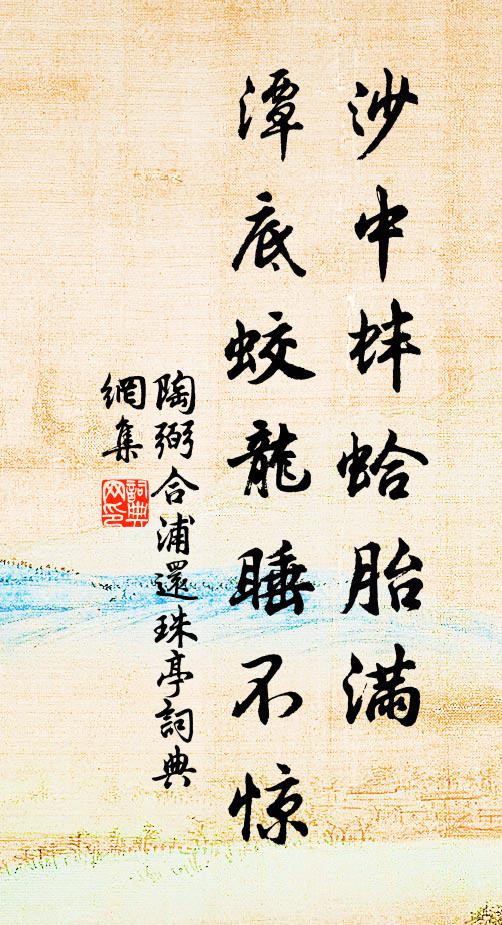 沙中蚌蛤胎满
潭底蛟龍睡不惊
陶弼合浦還珠亭詞典
網集
詞典
网印